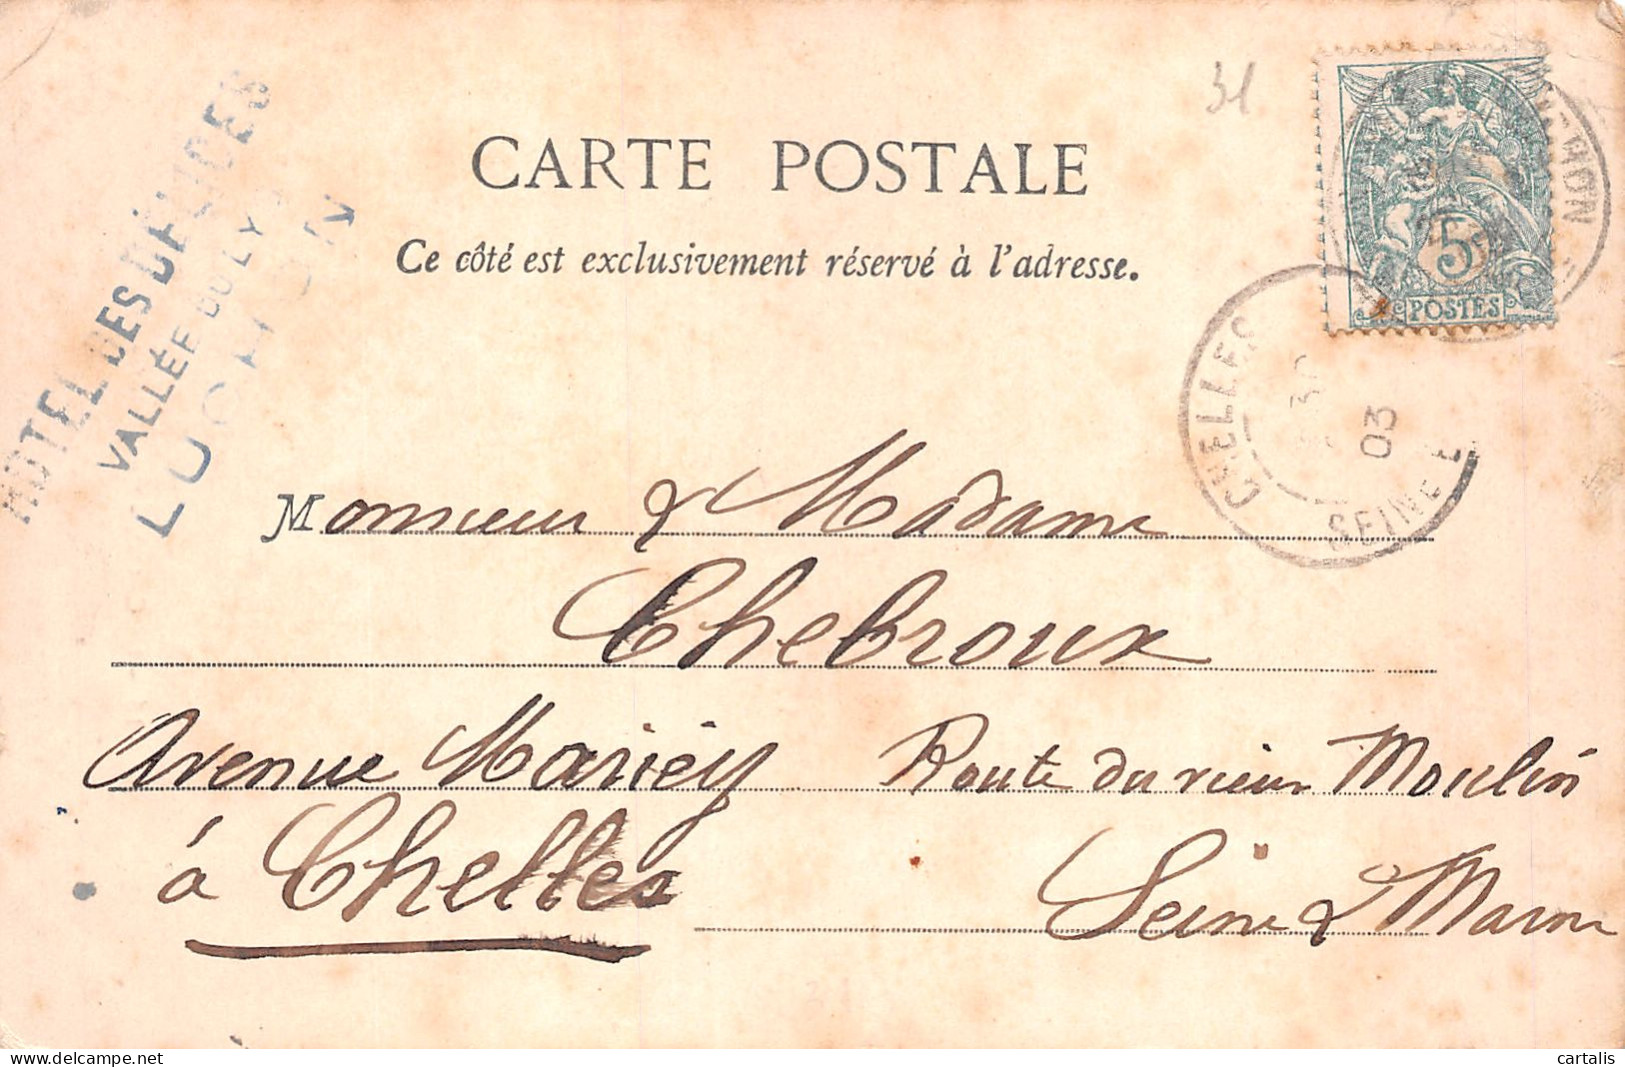 31
CARTE POSTALE
Ce côté est exclusivement réservé à l'adresse.
HÔTEL DES DÉLICES
VALLÉE DU LYS
LUCHON
5
POSTES
CHELLES
30
03
SEINE
Monsieur & Madame
Chebroux
Avenue Mariéy Route du vieux Moulin
à Chelles
Seine & Marne
cartalis